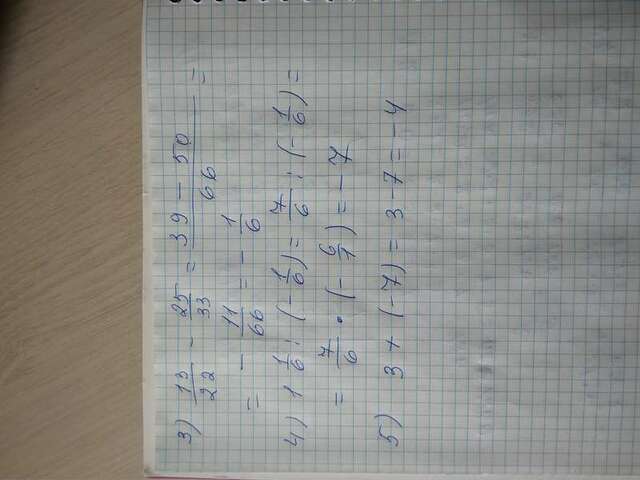 3) 13/22 - 25/33 = 39 - 50/66 =
= - 11/66 = - 1/6
4) 1 1/6 : (- 1/6) = 7/6 : (- 1/6) =
= 7/6 · (- 6/1) = - 7
5) 3 + (-7) = 3 7 = -4